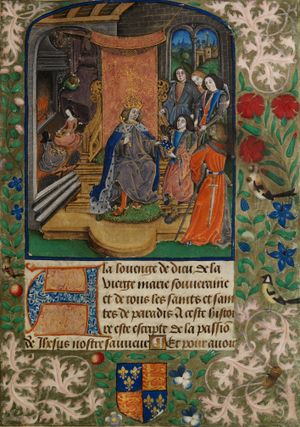 A la louenge de dieu, de la
vierge marie souueraine
et de tous les saints et sain
tes de paradis A ceste histoi
re est escripte de la passio
de Ihesus nostre sauueur Et pour auoir